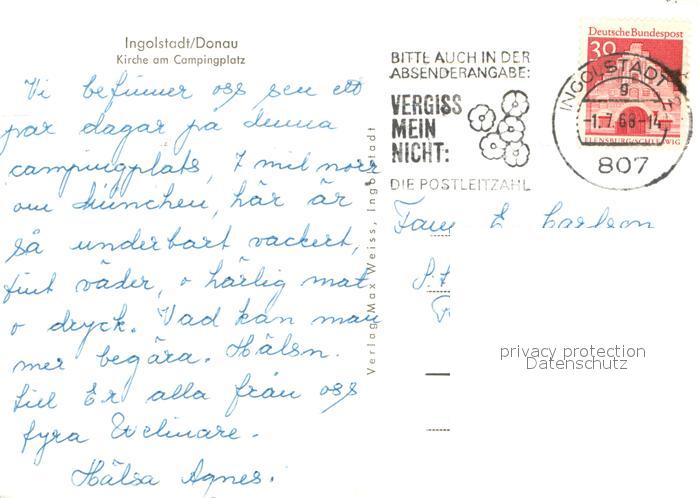 Ingolstadt/Donau
Kirche am Campingplatz
Vi befinner oss sen ett
par dagar på denna
campingplats, 7 mil norr
om München, här är
så underbart vackert,
fint väder, o härlig mat
o dryck. Vad kan man
mer begära. Hälsn.
till Er alla från oss
fyra
Hälsa Agnes.
Verlag Max Weiss, Ingolstadt
BITTE AUCH IN DER
ABSENDERANGABE:
VERGISS
MEIN
NICHT:
DIE POSTLEITZAHL
Deutsche Bundespost
30
FLENSBURG/SCHLESWIG
INGOLSTADT 2
g
-1.7.68-14
807
Fam E Carlson
privacy protection
Datenschutz